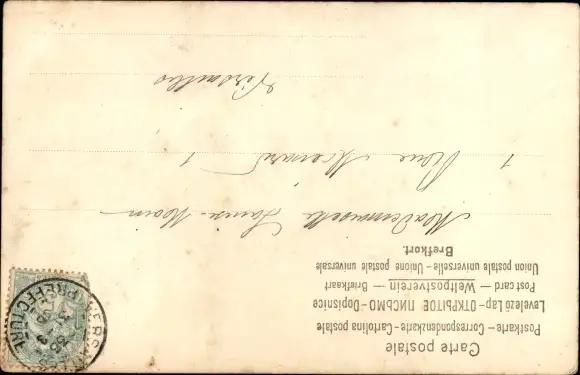 Carte postale
Postkarte – Correspondenzkarte – Cartolina postale
Levelező Lap – ОТКРЫТОЕ ПИСЬМО – Dopisnice
Post card – Weltpostverein – Briefkaart
Union postale universelle – Unione postale universale
Brefkort.
Mademoiselle
1 Rue 1
Versailles
VERSAILLES
PREFECTURE